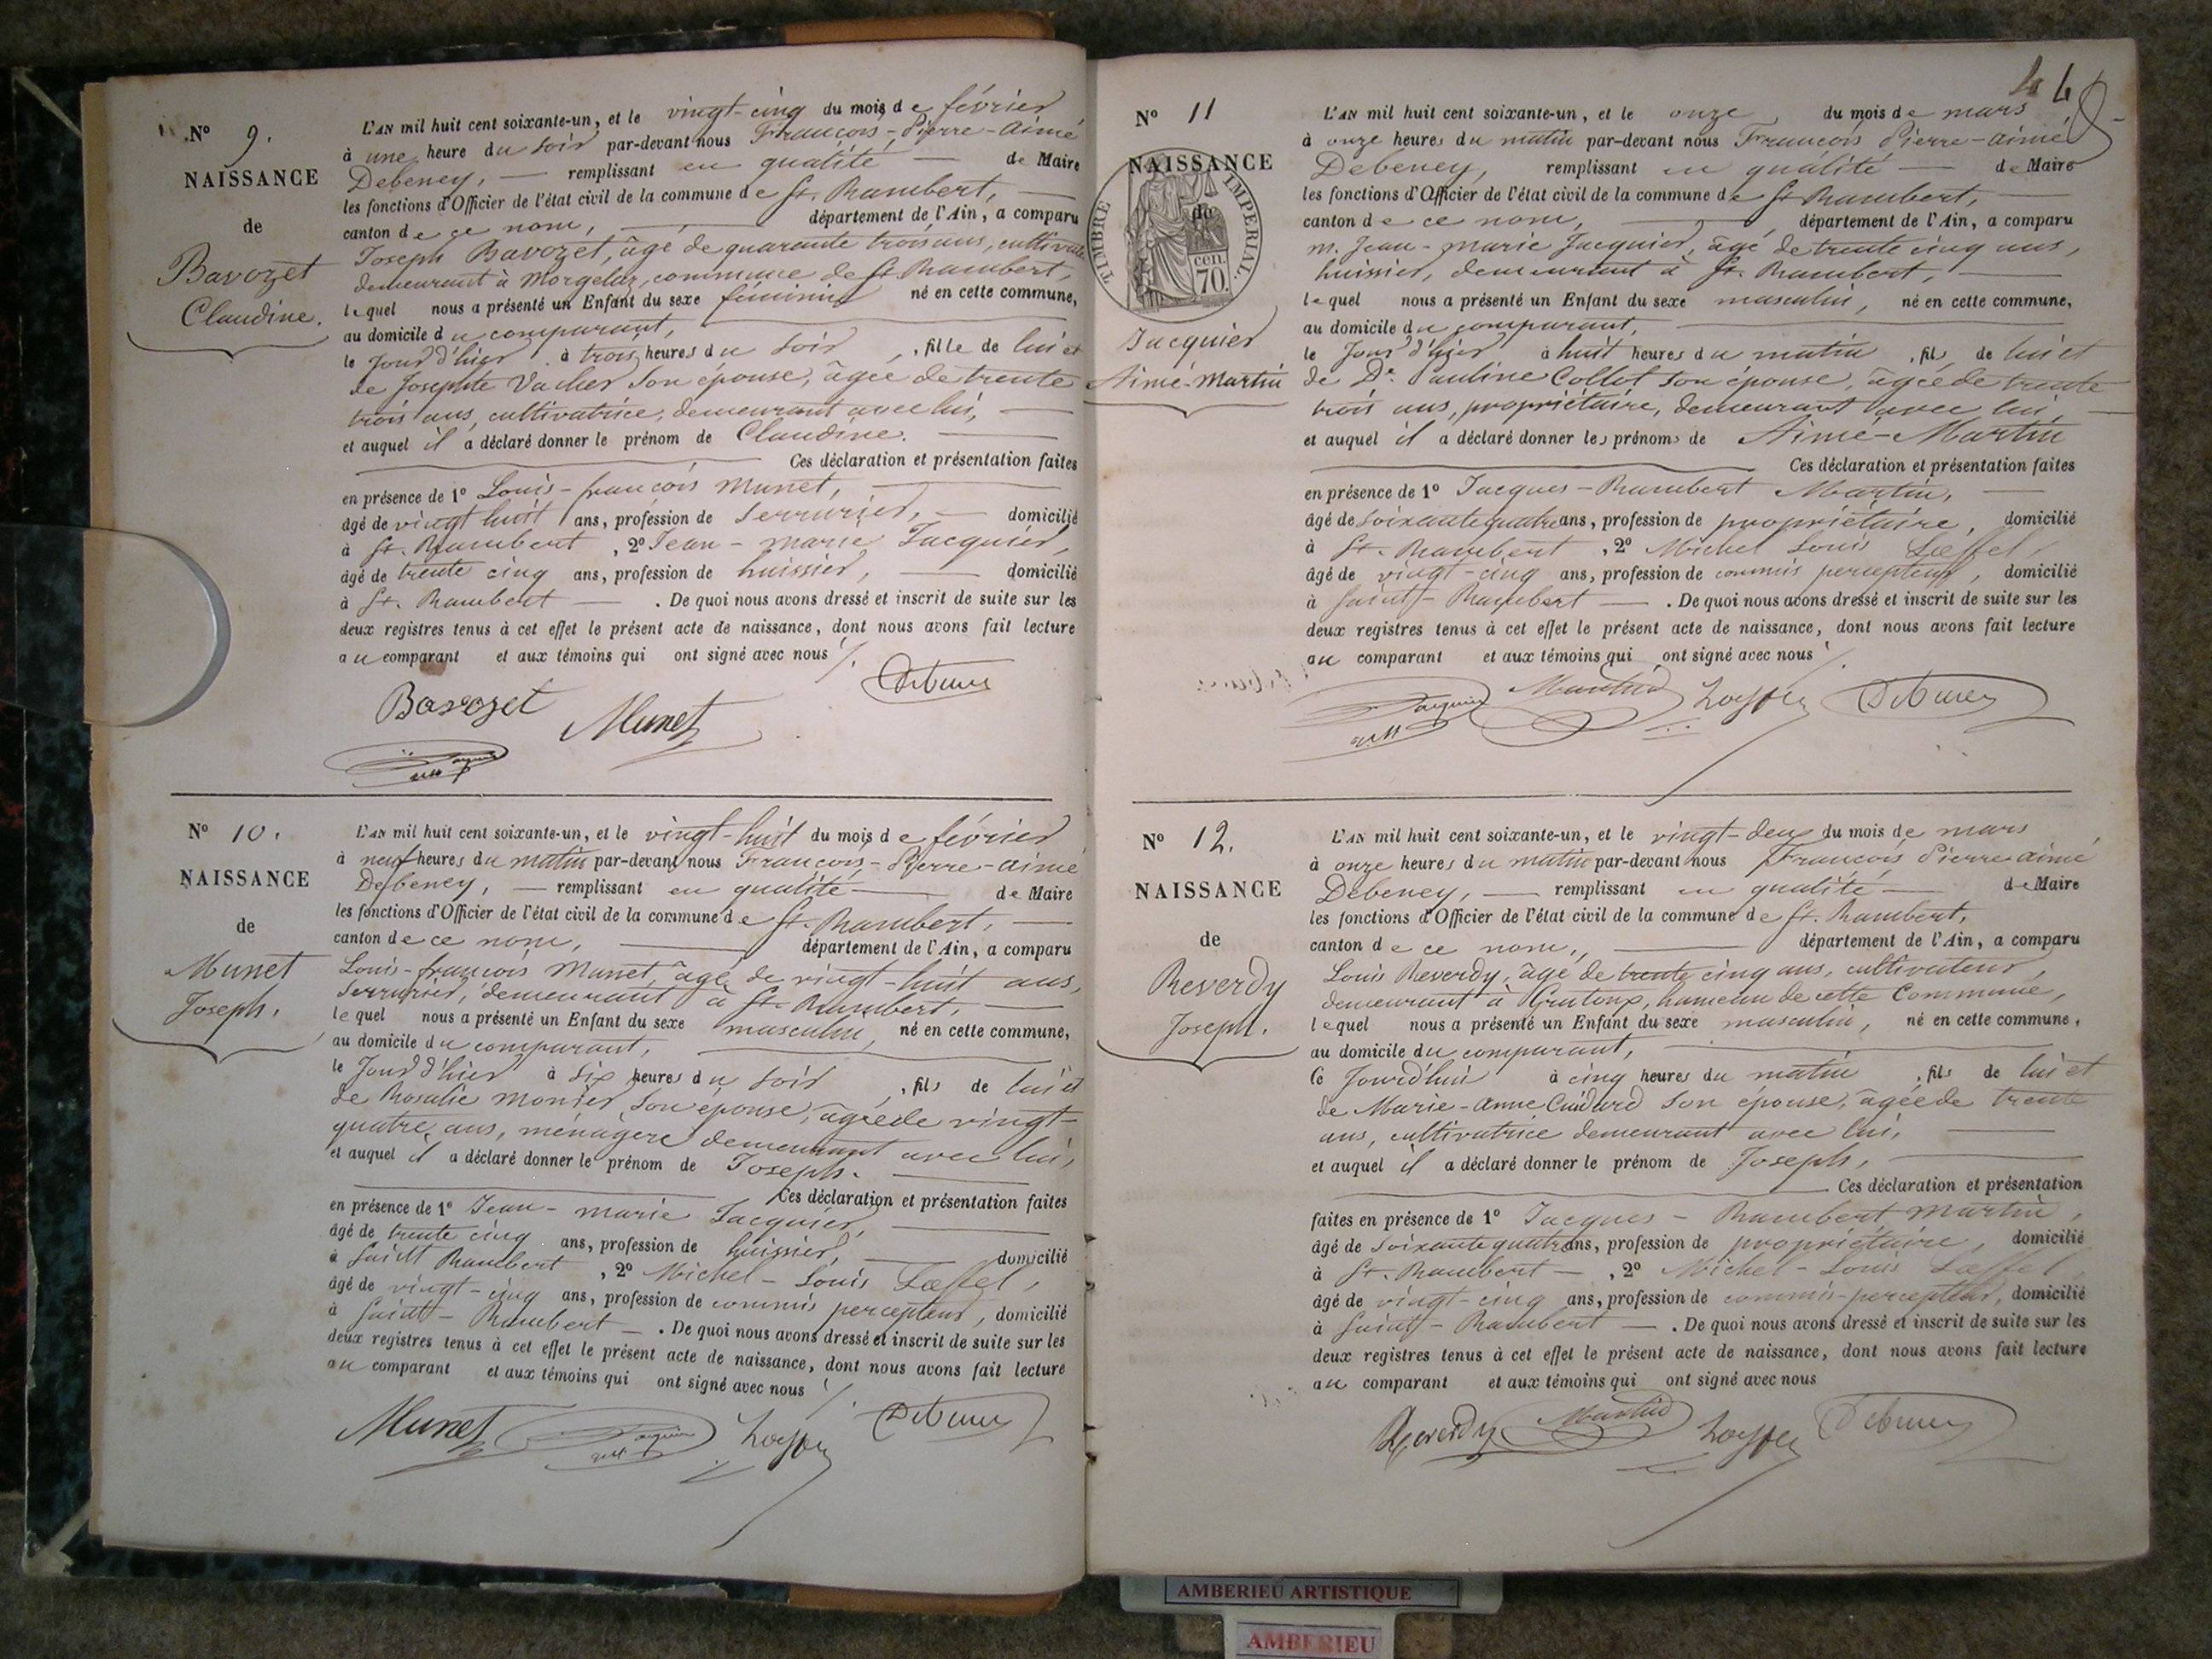 N° 9.
NAISSANCE
de
Bavozet
Claudine.
L'AN mil huit cent soixante-un, et le vingt-cinq du mois de février
à une heure du soir par-devant nous François-Pierre-Aimé
Debeney, — remplissant en qualité — de Maire
les fonctions d'Officier de l'état civil de la commune de St. Rambert,
canton de ce nom, département de l'Ain, a comparu
Joseph Bavozet, âgé de quarante trois ans, cultivateur
demeurant à Morgelaz, commune de St. Rambert,
lequel nous a présenté un Enfant du sexe féminin né en cette commune,
au domicile du comparant,
le Jour d'hier à trois heures du soir, fille de lui et
de Josephte Vacher son épouse, âgée de trente
trois ans, cultivatrice, demeurant avec lui,
et auquel il a déclaré donner le prénom de Claudine.
Ces déclaration et présentation faites
en présence de 1° Louis-françois Munet,
âgé de vingt huit ans, profession de Serrurier, — domicilié
à St. Rambert, 2° Jean-marie Jacquier,
âgé de trente cinq ans, profession de huissier, — domicilié
à St. Rambert — . De quoi nous avons dressé et inscrit de suite sur les
deux registres tenus à cet effet le présent acte de naissance, dont nous avons fait lecture
au comparant et aux témoins qui ont signé avec nous
Debeney
Bavozet Munet
Jacquier
N° 10.
NAISSANCE
de
Munet
Joseph.
L'AN mil huit cent soixante-un, et le vingt-huit du mois de février
à neuf heures du matin par-devant nous François-Pierre-aimé
Debeney, — remplissant en qualité — de Maire
les fonctions d'Officier de l'état civil de la commune de St. Rambert,
canton de ce nom, département de l'Ain, a comparu
Louis-françois Munet, âgé de vingt-huit ans,
Serrurier, demeurant à St. Rambert,
lequel nous a présenté un Enfant du sexe masculin, né en cette commune,
au domicile du comparant,
le Jour d'hier à six heures du soir, fils de lui et
de Rosalie Monier, son épouse, âgée de vingt-
quatre ans, ménagère demeurant avec lui,
et auquel il a déclaré donner le prénom de Joseph.
Ces déclaration et présentation faites
en présence de 1° Jean-marie Jacquier,
âgé de trente cinq ans, profession de huissier, domicilié
à Saint Rambert, 2° Michel-Louis Lœffel,
âgé de vingt-cinq ans, profession de commis percepteur, domicilié
à Saint-Rambert — . De quoi nous avons dressé et inscrit de suite sur les
deux registres tenus à cet effet le présent acte de naissance, dont nous avons fait lecture
au comparant et aux témoins qui ont signé avec nous
Munet Jacquier Loeffel Debeney
N° 11
NAISSANCE
de
TIMBRE IMPERIAL
70 cen.
Jacquier
Aimé-Martin
L'AN mil huit cent soixante-un, et le onze du mois de mars
à onze heures du matin par-devant nous François Pierre-aimé
Debeney, remplissant en qualité — de Maire
les fonctions d'Officier de l'état civil de la commune de St Rambert,
canton de ce nom, département de l'Ain, a comparu
m. Jean-marie Jacquier, âgé de trente cinq ans,
huissier, demeurant à St. Rambert,
lequel nous a présenté un Enfant du sexe masculin, né en cette commune,
au domicile du comparant,
le Jour d'hier à huit heures du matin, fils de lui et
de De. Pauline Collot son épouse, âgée de trente
trois ans, propriétaire, demeurant avec lui,
et auquel il a déclaré donner les prénoms de Aimé-Martin
Ces déclaration et présentation faites
en présence de 1° Jacques-Rambert Martin,
âgé de soixante quatre ans, profession de propriétaire, domicilié
à St. Rambert, 2° Michel Louis Lœffel,
âgé de vingt-cinq ans, profession de commis percepteur, domicilié
à Saint-Rambert — . De quoi nous avons dressé et inscrit de suite sur les
deux registres tenus à cet effet le présent acte de naissance, dont nous avons fait lecture
au comparant et aux témoins qui ont signé avec nous
Jacquier Martin Loeffel Debeney
N° 12.
NAISSANCE
de
Reverdy
Joseph.
L'AN mil huit cent soixante-un, et le vingt-deux du mois de mars
à onze heures du matin par-devant nous François Pierre aimé
Debeney, — remplissant en qualité — de Maire
les fonctions d'Officier de l'état civil de la commune de St. Rambert,
canton de ce nom, département de l'Ain, a comparu
Louis Reverdy, âgé de trente cinq ans, cultivateur,
demeurant à Grattoux, hameau de cette Commune,
lequel nous a présenté un Enfant du sexe masculin, né en cette commune,
au domicile du comparant,
ce Jourd'hui à cinq heures du matin, fils de lui et
de Marie-anne Cuidard son épouse, âgée de trente
ans, cultivatrice demeurant avec lui,
et auquel il a déclaré donner le prénom de Joseph,
Ces déclaration et présentation
faites en présence de 1° Jacques-Rambert Martin,
âgé de soixante quatre ans, profession de propriétaire, domicilié
à St. Rambert —, 2° Michel-Louis Lœffel,
âgé de vingt-cinq ans, profession de commis-percepteur, domicilié
à Saint-Rambert — . De quoi nous avons dressé et inscrit de suite sur les
deux registres tenus à cet effet le présent acte de naissance, dont nous avons fait lecture
au comparant et aux témoins qui ont signé avec nous
Reverdy Martin Loeffel Debeney
AMBERIEU ARTISTIQUE
AMBERIEU